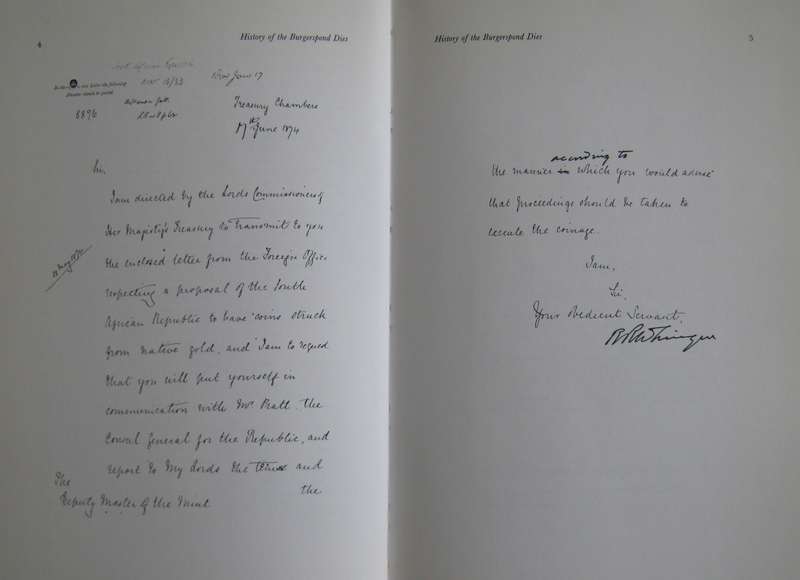 4
History of the Burgerspond Dies
In the
following
Number should be quoted
8896
Rec Jan 17
Treasury Chambers
17th June 1874
Sir,
I am directed by the Lords Commissioners of
Her Majesty's Treasury to transmit to you
the enclosed letter from the Foreign Office
respecting a proposal of the South
African Republic to have coins struck
from native gold, and I am to request
that you will put yourself in
communication with Mr Pratt, the
Consul General for the Republic, and
report to My Lords the terms and
the
The
Deputy Master of the Mint
History of the Burgerspond Dies
5
according to
the manner in which you would advise
that proceedings should be taken to
execute the coinage.
I am,
Sir,
Your Obedient Servant,